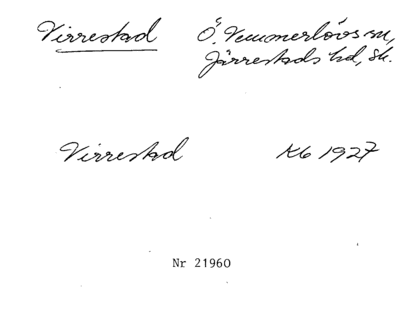 Virrestad Ö. Vemmerlövs sn,
Järrestads hd, Sk.
Virrestad Kb 1927
Nr 21960